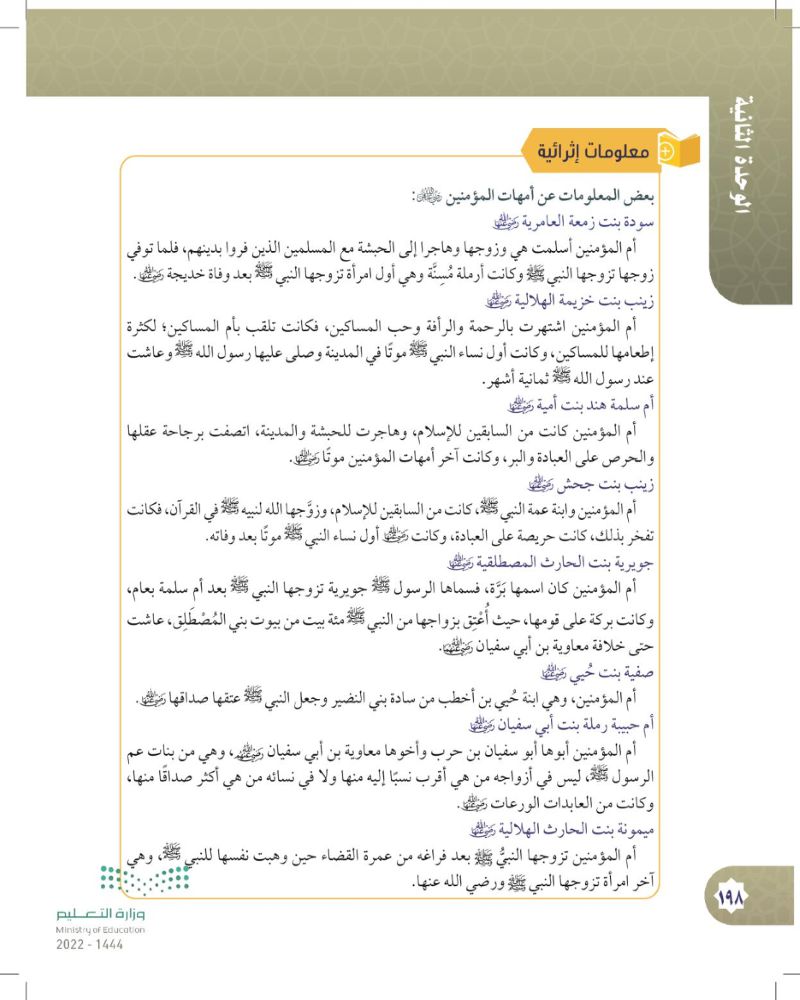 الوحدة الثانية
معلومات إثرائية
بعض المعلومات عن أمهات المؤمنين رضي الله عنهن:
سودة بنت زمعة العامرية رضي الله عنها
أم المؤمنين أسلمت هي وزوجها وهاجرا إلى الحبشة مع المسلمين الذين فروا بدينهم، فلما توفي
زوجها تزوجها النبي ﷺ وكانت أرملة مُسِنَّة وهي أول امرأة تزوجها النبي ﷺ بعد وفاة خديجة رضي الله عنها.
زينب بنت خزيمة الهلالية رضي الله عنها
أم المؤمنين اشتهرت بالرحمة والرأفة وحب المساكين، فكانت تلقب بأم المساكين؛ لكثرة
إطعامها للمساكين، وكانت أول نساء النبي ﷺ موتًا في المدينة وصلى عليها رسول الله ﷺ وعاشت
عند رسول الله ﷺ ثمانية أشهر.
أم سلمة هند بنت أمية رضي الله عنها
أم المؤمنين كانت من السابقين للإسلام، وهاجرت للحبشة والمدينة، اتصفت برجاحة عقلها
والحرص على العبادة والبر، وكانت آخر أمهات المؤمنين موتًا رضي الله عنها.
زينب بنت جحش رضي الله عنها
أم المؤمنين وابنة عمة النبي ﷺ، كانت من السابقين للإسلام، وزوَّجها الله لنبيه ﷺ في القرآن، فكانت
تفخر بذلك، كانت حريصة على العبادة، وكانت رضي الله عنها أول نساء النبي ﷺ موتًا بعد وفاته.
جويرية بنت الحارث المصطلقية رضي الله عنها
أم المؤمنين كان اسمها بَرَّة، فسماها الرسول ﷺ جويرية تزوجها النبي ﷺ بعد أم سلمة بعام،
وكانت بركة على قومها، حيث أُعْتِق بزواجها من النبي ﷺ مئة بيت من بيوت بني المُصْطَلِق، عاشت
حتى خلافة معاوية بن أبي سفيان رضي الله عنهما.
صفية بنت حُيي رضي الله عنها
أم المؤمنين، وهي ابنة حُيي بن أخطب من سادة بني النضير وجعل النبي ﷺ عتقها صداقها رضي الله عنها.
أم حبيبة رملة بنت أبي سفيان رضي الله عنها
أم المؤمنين أبوها أبو سفيان بن حرب وأخوها معاوية بن أبي سفيان رضي الله عنهم، وهي من بنات عم
الرسول ﷺ، ليس في أزواجه من هي أقرب نسبًا إليه منها ولا في نسائه من هي أكثر صداقًا منها،
وكانت من العابدات الورعات رضي الله عنها.
ميمونة بنت الحارث الهلالية رضي الله عنها
أم المؤمنين تزوجها النبيُّ ﷺ بعد فراغه من عمرة القضاء حين وهبت نفسها للنبي ﷺ، وهي
آخر امرأة تزوجها النبي ﷺ ورضي الله عنها.
١٩٨
وزارة التعـليم
Ministry of Education
2022 - 1444